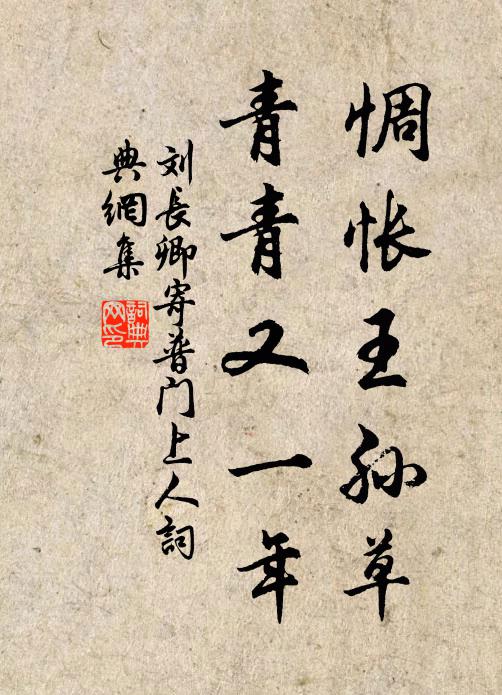 惆怅王孙草
青青又一年
刘長卿寄普门上人詞
典網集
詞典网印